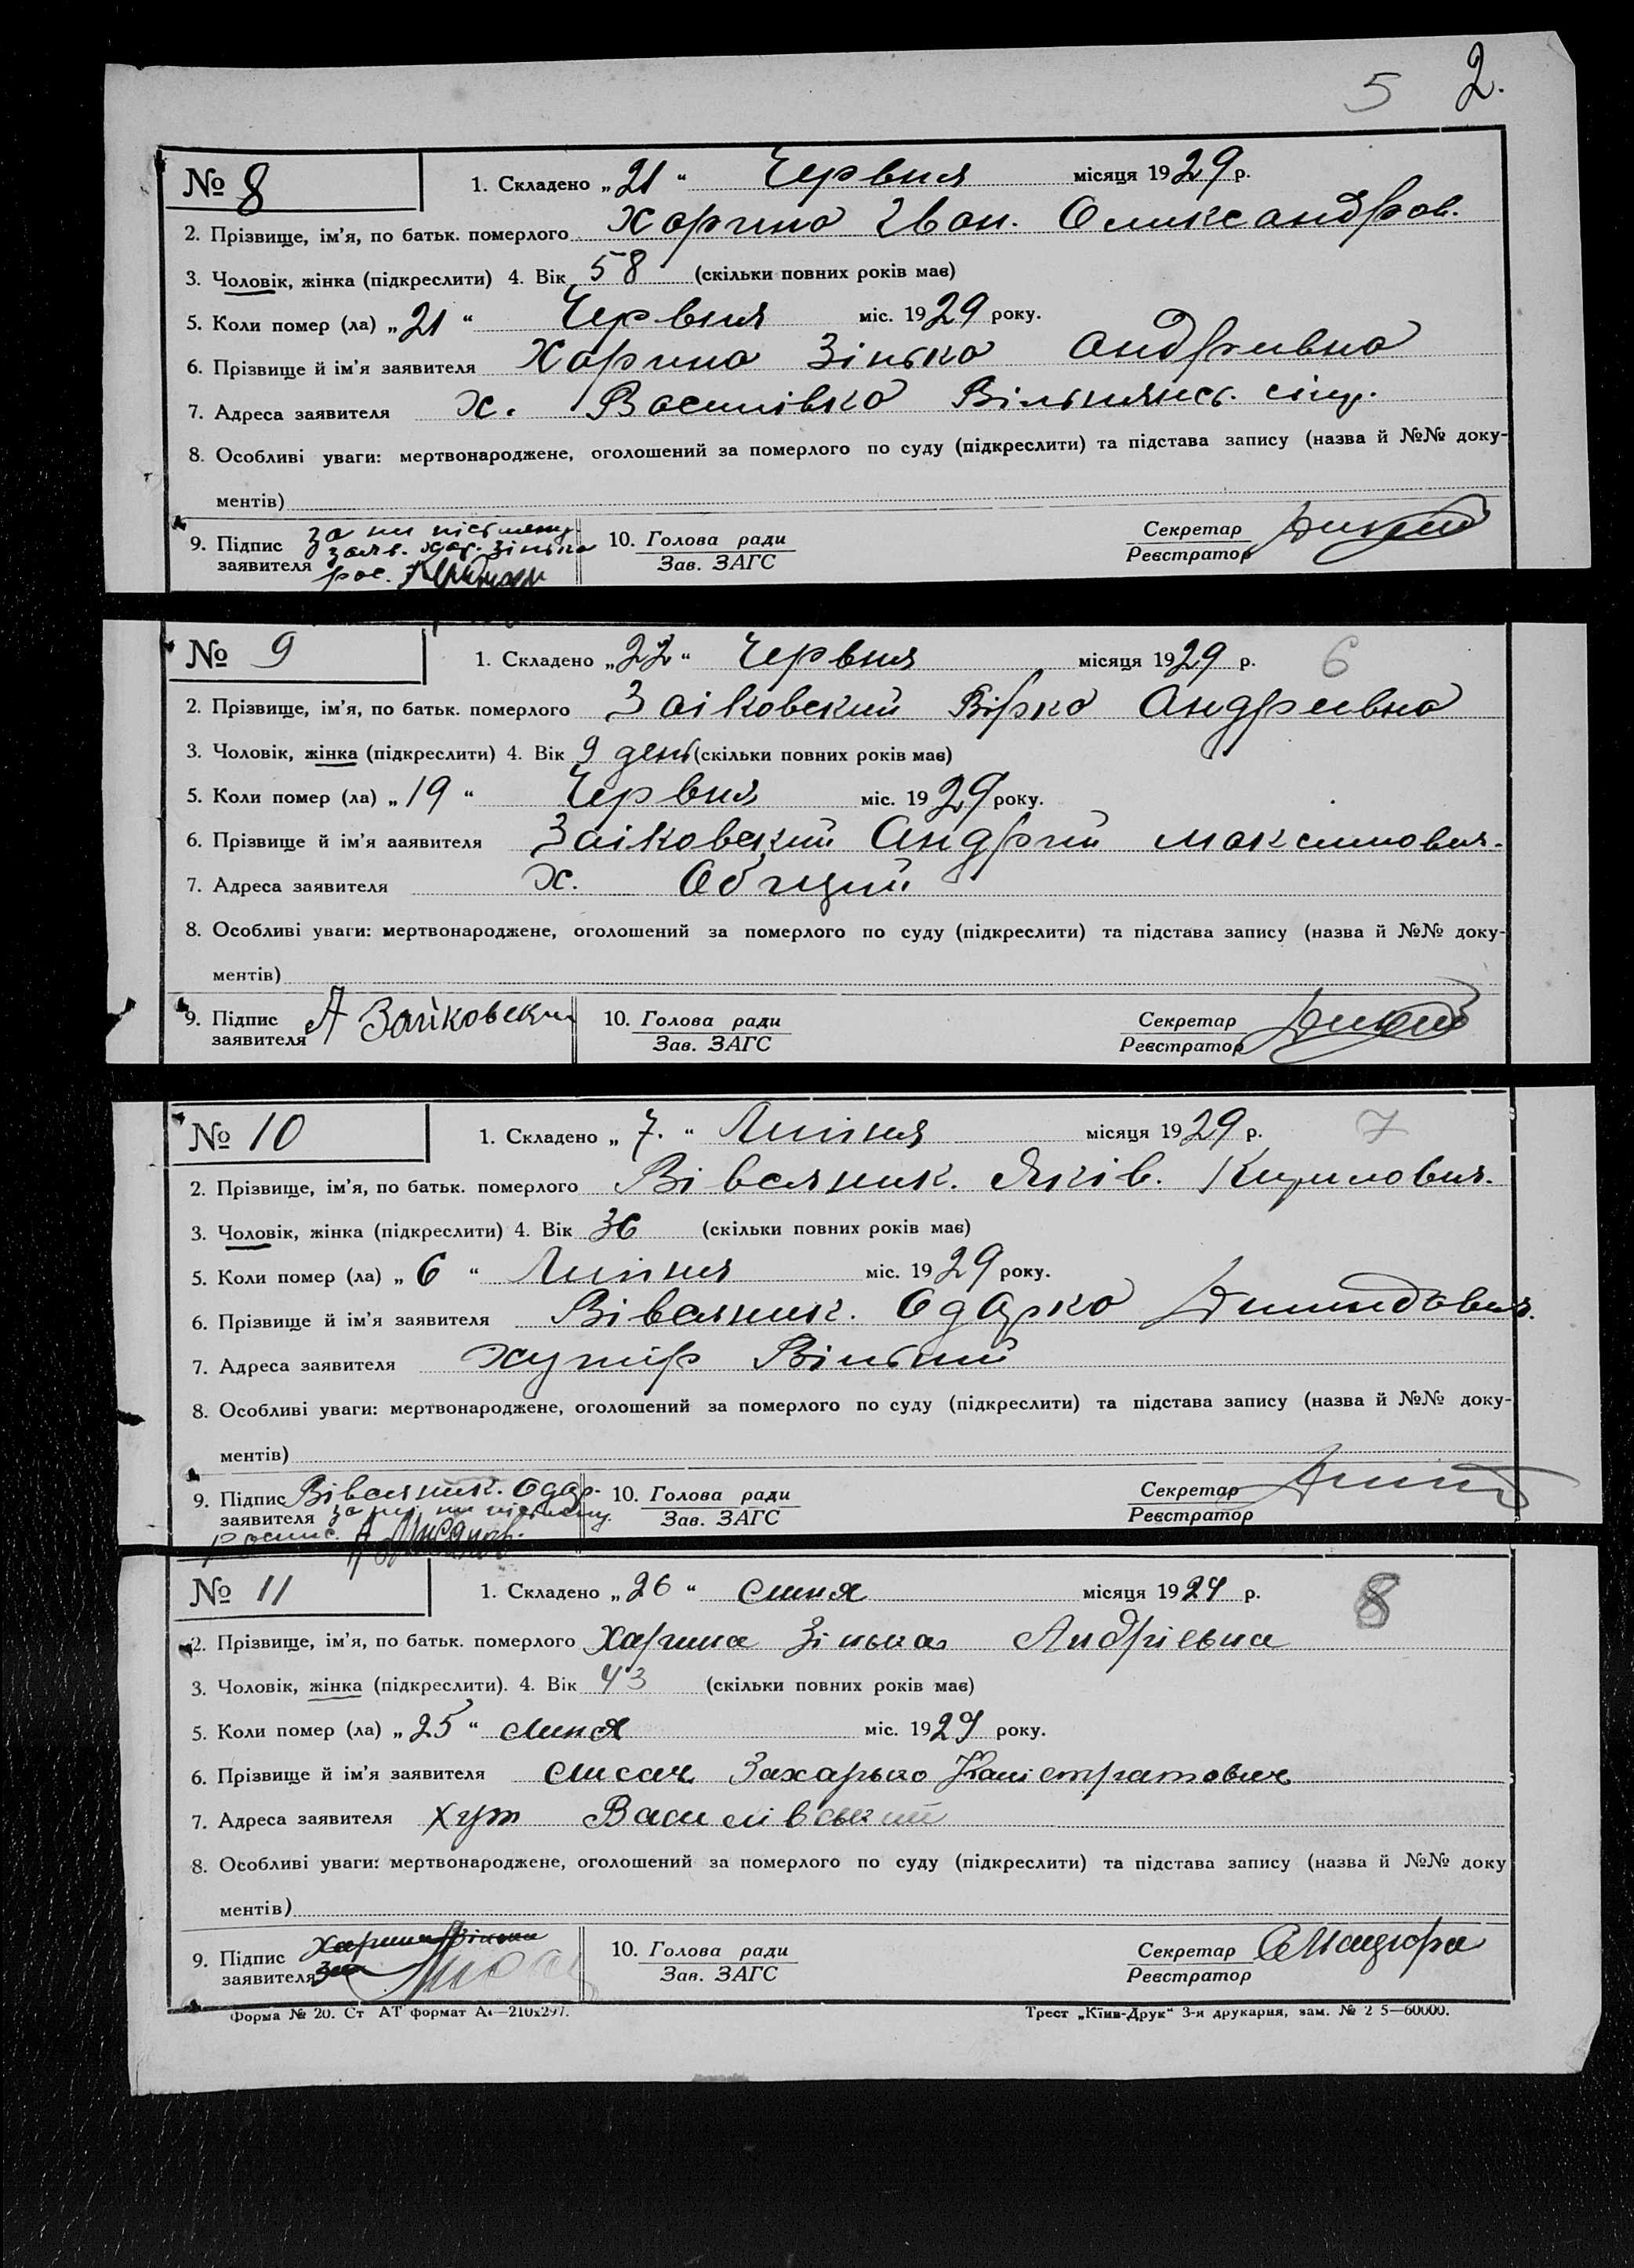 5 2.
№ 8
1. Складено „21“ Червня місяця 1929 р.
2. Прізвище, ім'я, по батьк. померлого Харина Іван. Олександров.
3. Чоловік, жінка (підкреслити) 4. Вік 58 (скільки повних років має)
5. Коли помер (ла) „21“ Червня міс. 1929 року.
6. Прізвище й ім'я заявителя Харина Зінька Андривна
7. Адреса заявителя х. Василівка Вільнянсь. сіль.
8. Особливі уваги: мертвонароджене, оголошений за померлого по суду (підкреслити) та підстава запису (назва й №№ доку-
ментів)
9. Підпис за ни письмену 10. Голова ради Секретар
заявителя заяв. хар. Зінька Зав. ЗАГС Реєстратор
рос.
№ 9
1. Складено „22“ Червня місяця 1929 р. 6
2. Прізвище, ім'я, по батьк. померлого Заіковский Вірка Андреивна
3. Чоловік, жінка (підкреслити) 4. Вік 9 день (скільки повних років має)
5. Коли помер (ла) „19“ Червня міс. 1929 року.
6. Прізвище й ім'я заявителя Заіковский Андрий Максимович.
7. Адреса заявителя х. Общий
8. Особливі уваги: мертвонароджене, оголошений за померлого по суду (підкреслити) та підстава запису (назва й №№ доку-
ментів)
9. Підпис А Зайковский 10. Голова ради Секретар
заявителя Зав. ЗАГС Реєстратор
№ 10
1. Складено „7.“ Липня місяця 1929 р. 7
2. Прізвище, ім'я, по батьк. померлого Вівсяник. Яків. Кирилович.
3. Чоловік, жінка (підкреслити) 4. Вік 36 (скільки повних років має)
5. Коли помер (ла) „6“ Липня міс. 1929 року.
6. Прізвище й ім'я заявителя Вівсяник. Одарка
7. Адреса заявителя хутір Вільний
8. Особливі уваги: мертвонароджене, оголошений за померлого по суду (підкреслити) та підстава запису (назва й №№ доку-
ментів)
9. Підпис Вівсяник. Одар. 10. Голова ради Секретар
заявителя за ни письмену. Зав. ЗАГС Реєстратор
роспис.
№ 11
1. Складено „26“ липня місяця 1929 р. 8
2. Прізвище, ім'я, по батьк. померлого Харина Зінька Андрієвна
3. Чоловік, жінка (підкреслити). 4. Вік 43 (скільки повних років має)
5. Коли помер (ла) „25“ липня міс. 1929 року.
6. Прізвище й ім'я заявителя Лисач Захарько Каністратович
7. Адреса заявителя хут Василівський
8. Особливі уваги: мертвонароджене, оголошений за померлого по суду (підкреслити) та підстава запису (назва й №№ доку
ментів)
9. Підпис Харина Зінька 10. Голова ради Секретар СМацюра
заявителя за Зав. ЗАГС Реєстратор
Форма № 20. Ст АТ формат А4—210x297. Трест „Київ-Друк“ 3-я друкарня, зам. № 2 5—60000.